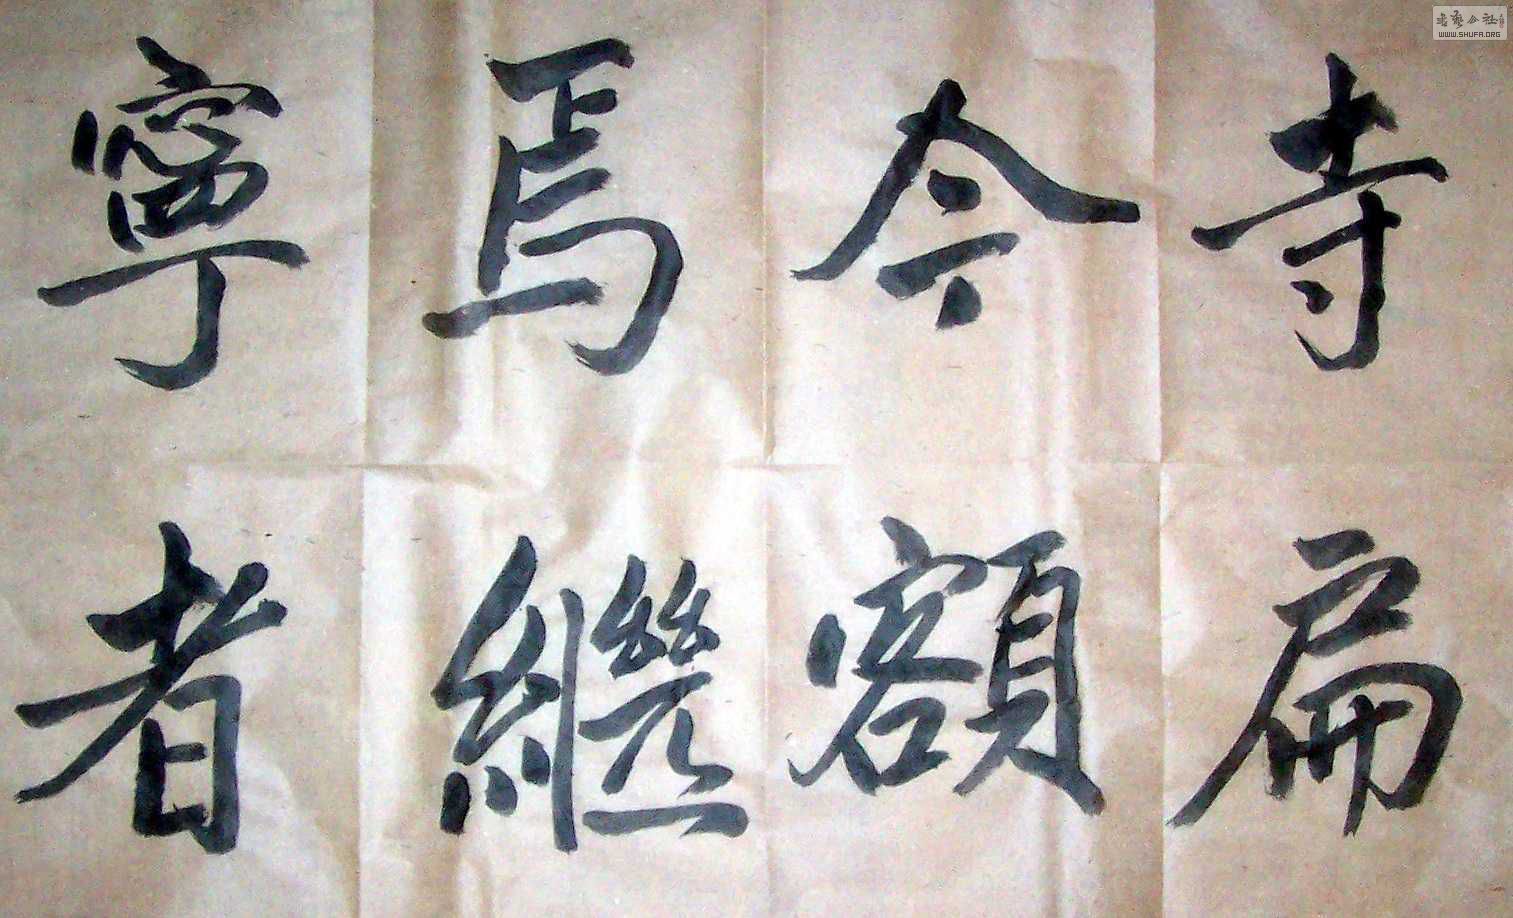 寺扁
今額
焉繼
寧者
書藝公社
WWW.SHUFA.ORG